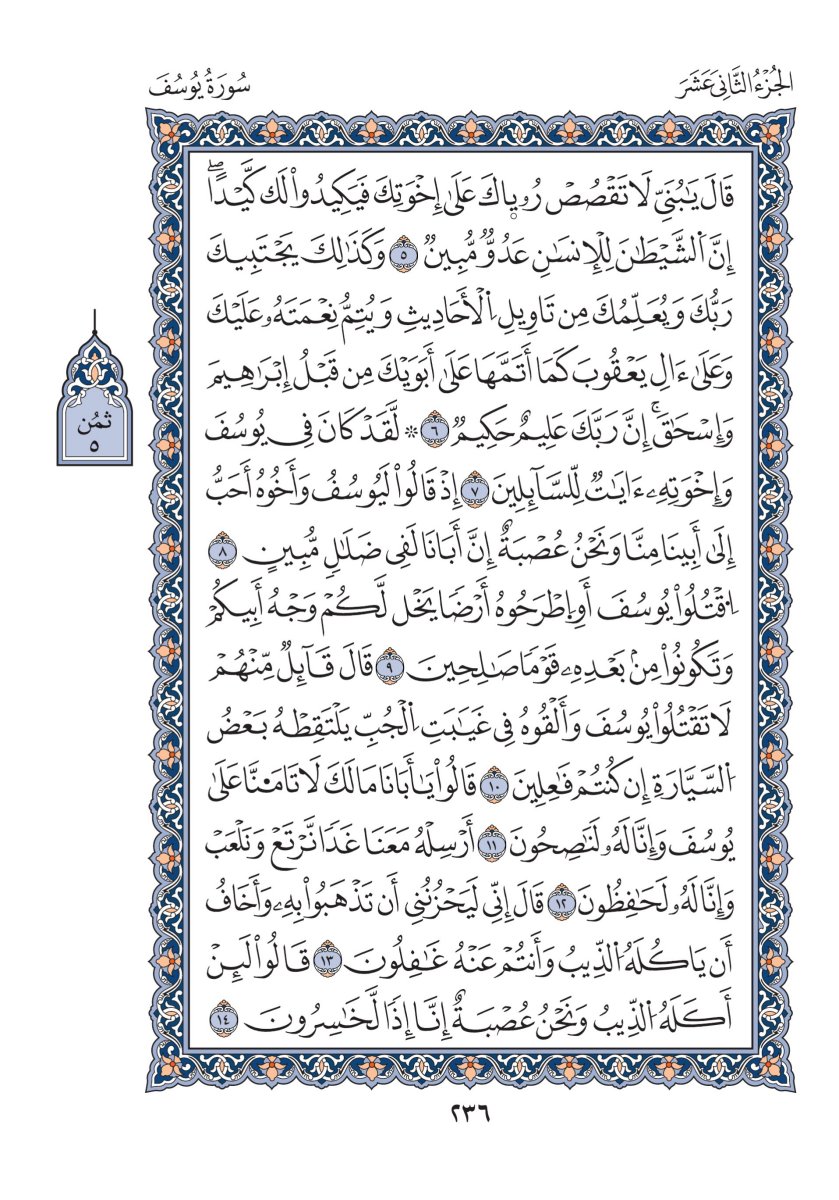 الجُزْءُ الثَّانِيَ عَشَرَ
سُورَةُ يُوسُفَ
قَالَ يَٰبُنَيِّ لَا تَقْصُصْ رُءۡيٜاكَ عَلَىٰ إِخْوَتِكَ فَيَكِيدُواْ لَك كَّيْدًاۖ
إِنَّ اَ۬لشَّيْطَٰنَ لِلْإِنسَٰنِ عَدُوٌّ مُّبِينٌ ٥ وَكَذَٰلِكَ يَجْتَبِيكَ
رَبُّكَ وَيُعَلِّمُكَ مِن تَاوِيلِ اِ۬لْأَحَادِيثِ وَيُتِمُّ نِعْمَتَهُۥ عَلَيْكَ
وَعَلَىٰ ءَالِ يَعْقُوبَ كَمَا أَتَمَّهَا عَلَىٰ أَبَوَيْكَ مِن قَبْلُ إِبْرَٰهِيمَ
وَإِسْحَٰقَۚ إِنَّ رَبَّكَ عَلِيمٌ حَكِيمٌ ٦ ۞ لَّقَدْ كَانَ فِي يُوسُفَ
وَإِخْوَتِهِۦ ءَايَٰتٌ لِّلسَّآئِلِينَ ٧ إِذْ قَالُواْ لَيُوسُفُ وَأَخُوهُ أَحَبُّ
إِلَىٰ أَبِينَا مِنَّا وَنَحْنُ عُصْبَةٌ إِنَّ أَبَانَا لَفِي ضَلَٰلٍ مُّبِينٍ ٨
اِ۟قْتُلُواْ يُوسُفَ أَوِ اِ۪طْرَحُوهُ أَرْضًا يَخْل لَّكُمْ وَجْهُ أَبِيكُمْ
وَتَكُونُواْ مِنۢ بَعْدِهِۦ قَوْمًا صَٰلِحِينَ ٩ قَالَ قَآئِلٌ مِّنْهُمْ
لَا تَقْتُلُواْ يُوسُفَ وَأَلْقُوهُ فِي غَيَٰبَتِ اِ۬لْجُبِّ يَلْتَقِطْهُ بَعْضُ
اُ۬لسَّيَّارَةِ إِن كُنتُمْ فَٰعِلِينَ ١٠ قَالُواْ يَٰأَبَانَا مَالَكَ لَا تَامَ۬نَّا عَلَىٰ
يُوسُفَ وَإِنَّا لَهُۥ لَنَٰصِحُونَ ١١ أَرْسِلْهُ مَعَنَا غَدًا نَّرْتَعْ وَنَلْعَبْ
وَإِنَّا لَهُۥ لَحَٰفِظُونَ ١٢ قَالَ إِنِّي لَيَحْزُنُنِي أَن تَذْهَبُواْ بِهِۦ وَأَخَافُ
أَن يَاكُلَهُ اُ۬لذِّيبُ وَأَنتُمْ عَنْهُ غَٰفِلُونَ ١٣ قَالُواْ لَئِنْ
أَكَلَهُ اُ۬لذِّيبُ وَنَحْنُ عُصْبَةٌ إِنَّا إِذًا لَّخَٰسِرُونَ ١٤
ثمُن
٥
٢٣٦